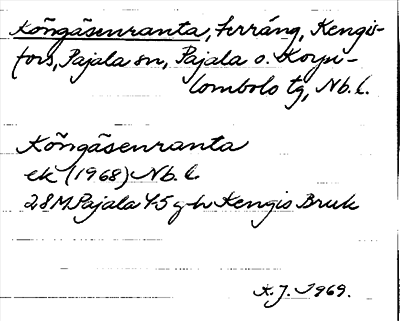 Kõngäsenranta, terräng, Kengis-
fors, Pajala sn, Pajala o. Korpi-
lombolo tg, Nb. l.
Kõngäsenranta
ek (1968) Nb. l.
28M Pajala 45 g-h Kengis Bruk
K.J. 1969.